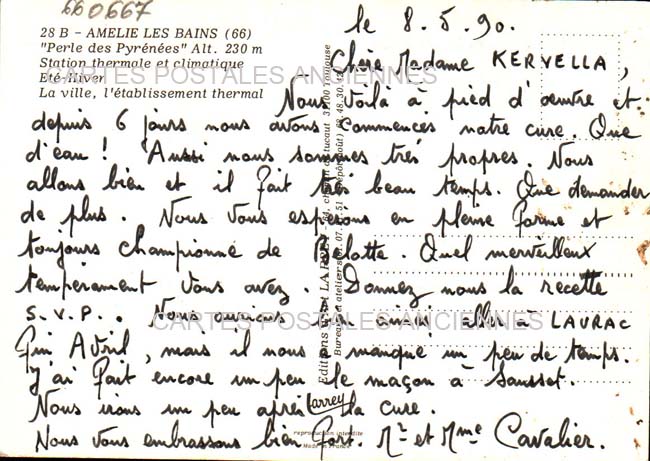 660667
28 B - AMELIE LES BAINS (66)
"Perle des Pyrénées" Alt. 230 m
Station thermale et climatique
Eté-Hiver
La ville, l'établissement thermal
le 8.5.90.
Chère Madame KERVELLA,
Nous voilà à pied d'oeuvre et
depuis 6 jours nous avons commencés notre cure. Que
d'eau ! Aussi nous sommes très propres. Nous
allons bien et il fait très beau temps. Que demander
de plus. Nous vous espérons en pleine forme et
toujours championne de Belotte. Quel merveilleux
temperament vous avez. Donnez nous la recette
S.V.P.. Nous aurions bien aimé aller à LAURAC
Fin Avril, mais il nous a manqué un peu de temps.
J'ai fait encore un peu le maçon à Sausset.
Nous irons un peu après la cure.
Nous vous embrassons bien fort. Mr et Mme Cavalier.
CARTES POSTALES ANCIENNES
CARTES POSTALES ANCIENNES
Editions
Larrey
reproduction interdite
Made in France